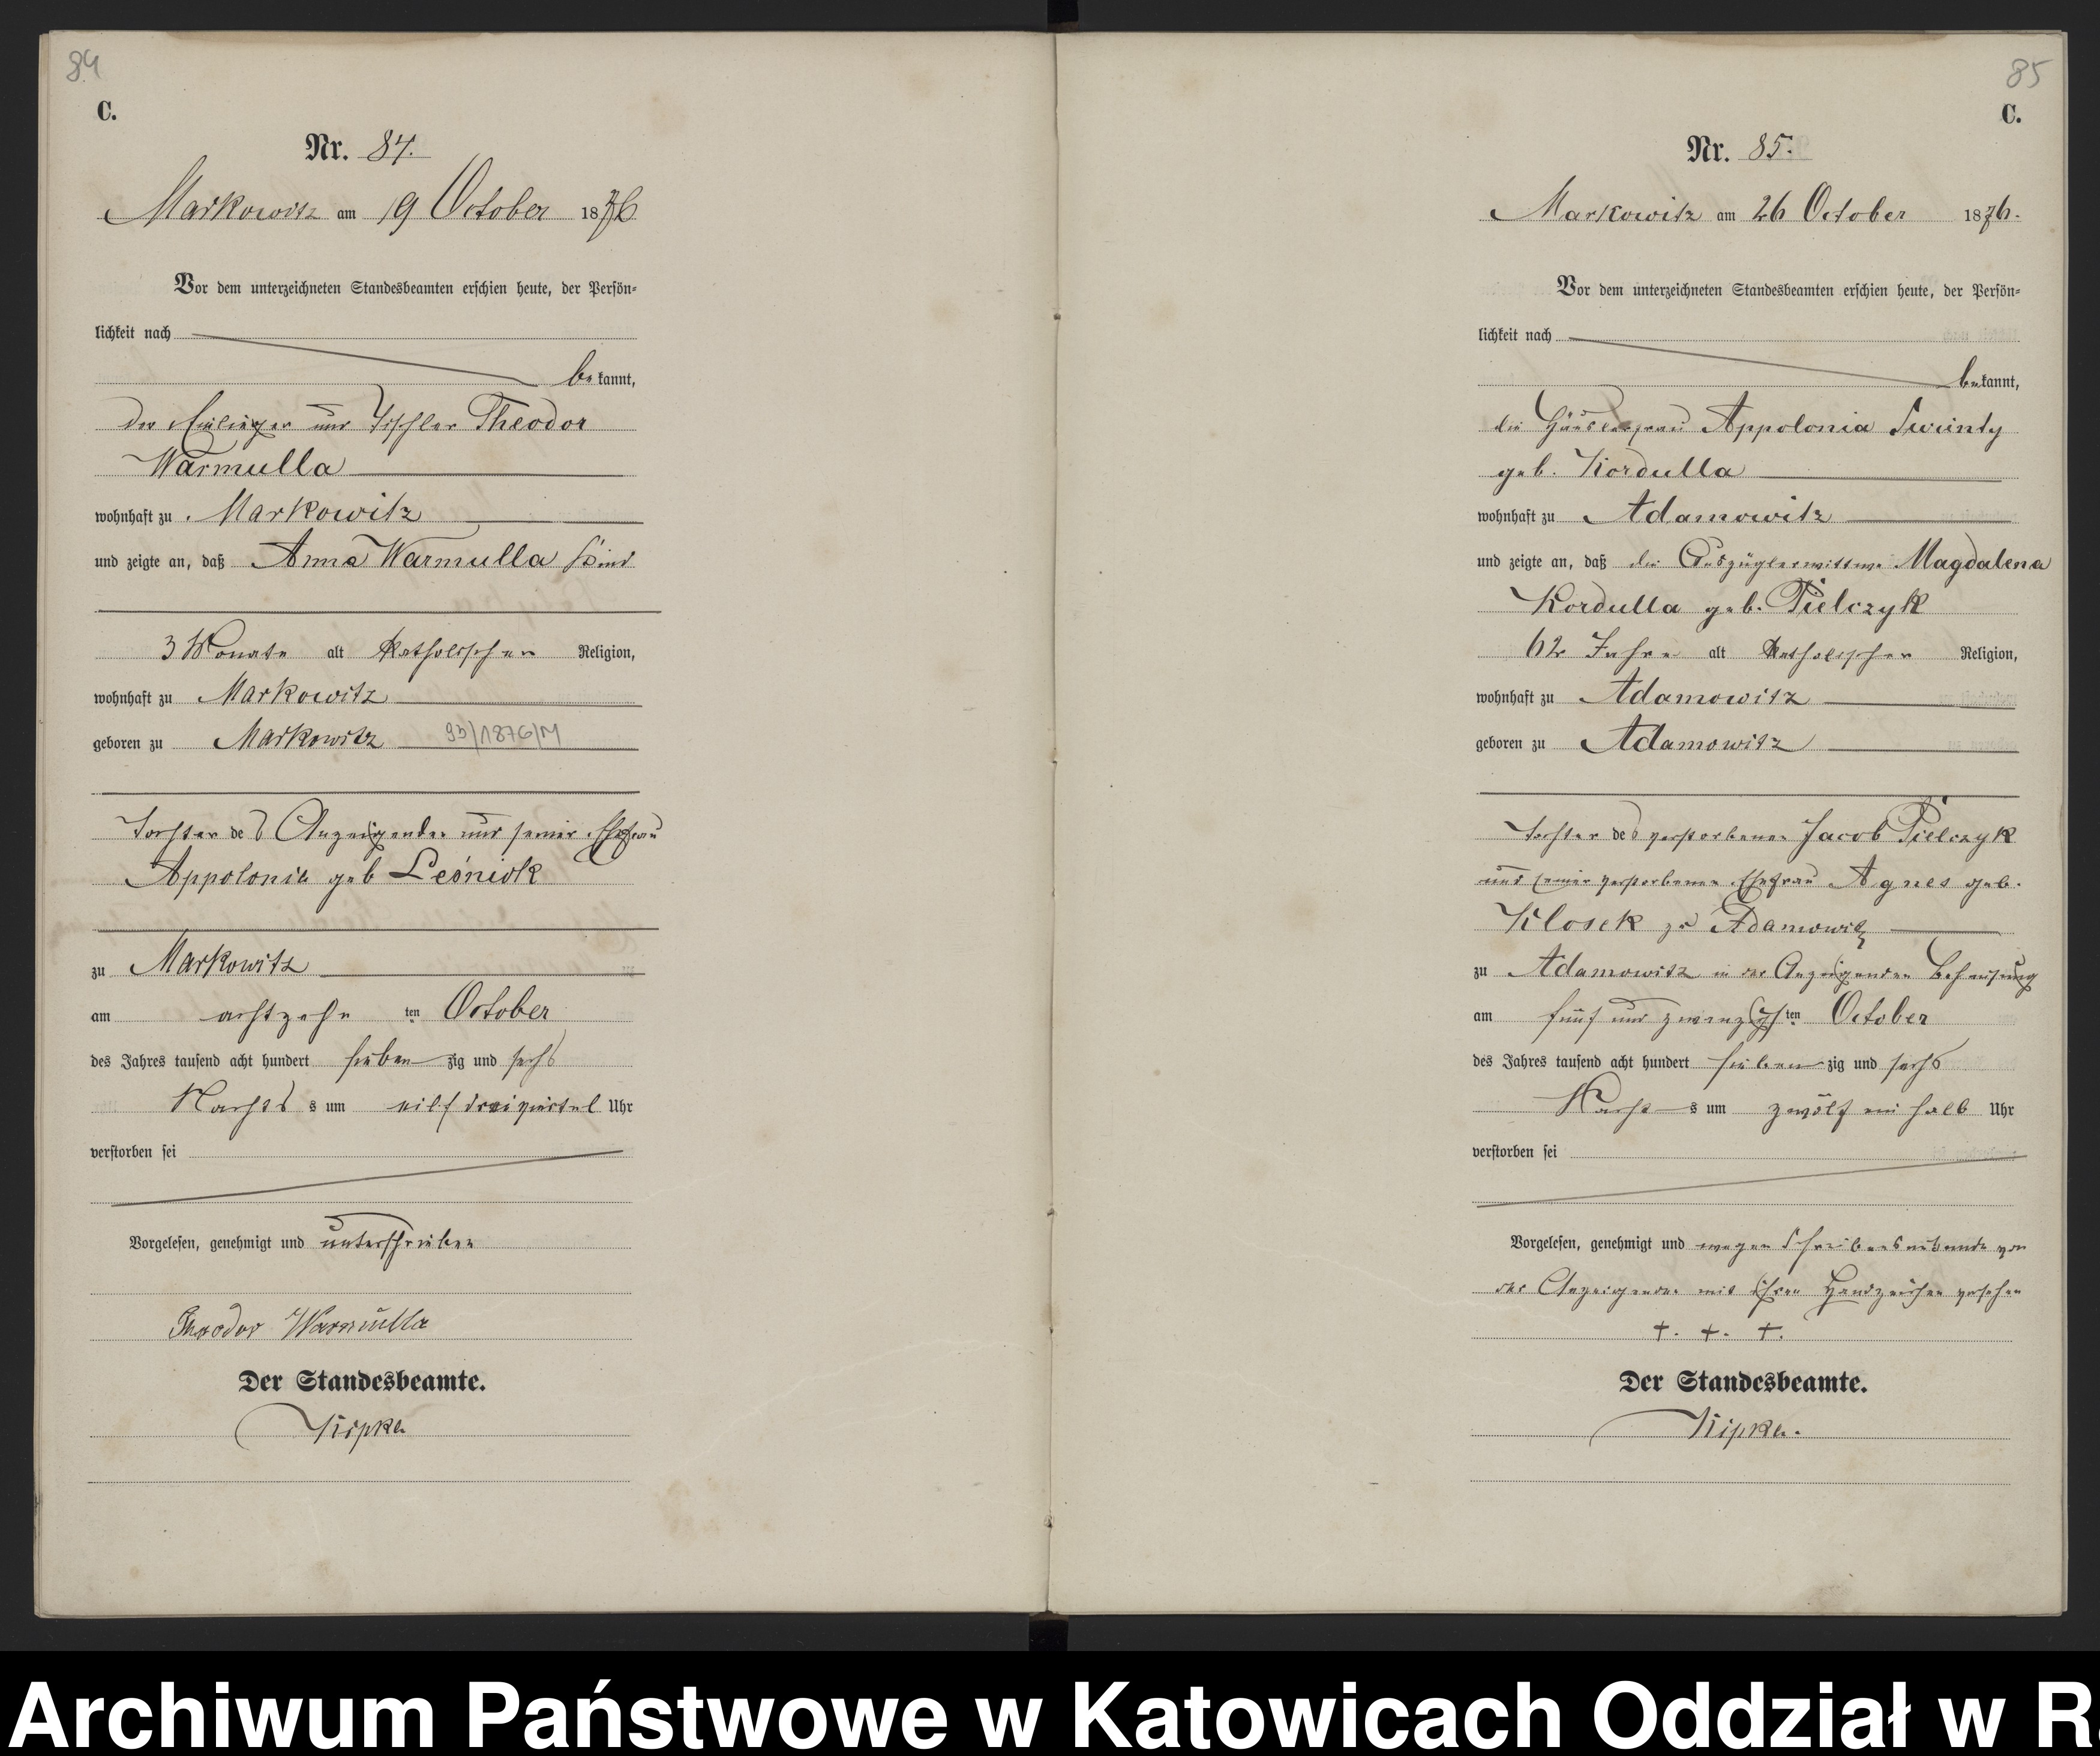 84
C.
Nr. 84.
Markowitz am 19 October 1876
Vor dem unterzeichneten Standesbeamten erschien heute, der Persön-
lichkeit nach
bekannt,
der Einlieger und Tischler Theodor
Warmulla
wohnhaft zu Markowitz
und zeigte an, daß Anna Warmulla Kind
3 Monate alt katholischer Religion,
wohnhaft zu Markowitz
geboren zu Markowitz 93/1876/M
Tochter des Anzeigenden und seiner Ehefrau
Appolonia geb Leśniok
zu Markowitz
am achtzehn ten October
des Jahres tausend acht hundert sieben zig und sechs
Nachts s um eilf dreiviertel Uhr
verstorben sei
Vorgelesen, genehmigt und unterschrieben
Theodor Warmulla
Der Standesbeamte.
Kipka
85
C.
Nr. 85.
Markowitz am 26 October 1876.
Vor dem unterzeichneten Standesbeamten erschien heute, der Persön-
lichkeit nach
bekannt,
die Häuslerfrau Appolonia Swienty
geb. Kordulla
wohnhaft zu Adamowitz
und zeigte an, daß die Auszüglerwittwe Magdalena
Kordulla geb. Pielczyk
62 Jahre alt katholischer Religion,
wohnhaft zu Adamowitz
geboren zu Adamowitz
Tochter des verstorbenen Jacob Pielczyk
und seiner verstorbenen Ehefrau Agnes geb.
Klosek zu Adamowitz
zu Adamowitz in der Anzeigenden Behausung
am fünf und zwanzigsten October
des Jahres tausend acht hundert sieben zig und sechs
Nacht s um zwölf ein halb Uhr
verstorben sei
Vorgelesen, genehmigt und wegen Schreibensunkunde von
der Anzeigenden mit ihren Handzeichen versehen
+. +. +.
Der Standesbeamte.
Kipka.
Archiwum Państwowe w Katowicach Oddział w R